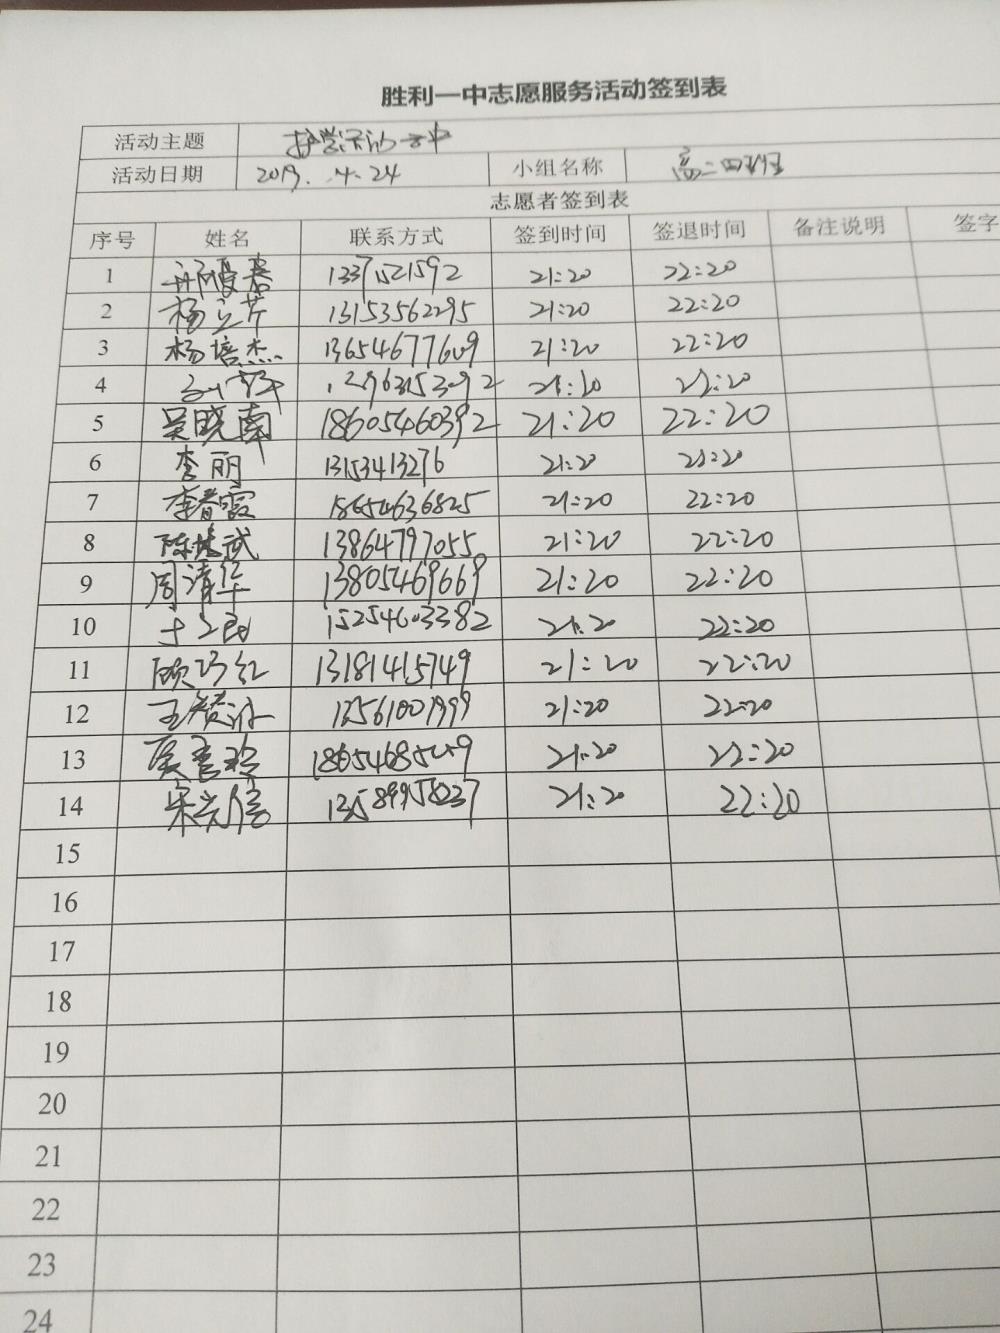 胜利一中志愿服务活动签到表
活动主题
活动日期 2019.4.24 小组名称 高二四班
志愿者签到表
序号 姓名 联系方式 签到时间 签退时间 备注说明 签字
1 21:20 22:20
2 杨立芹 13153562295 21:20 22:20
3 杨培杰 13654677609 21:20 22:20
4 22:20
5 吴晓南 18605460392 21:20 22:20
6 李丽 13153413276 21:20 22:20
7 李春霞 18654636825 21:20 22:20
8 13864797055 21:20 22:20
9 周清华 13805469669 21:20 22:20
10 15254603382 21:20 22:20
11 顾巧红 13181415749 21:20 22:20
12 13561001999 21:20 22:20
13 21:20 22:20
14 宋兴信 13589958237 21:20 22:20
15
16
17
18
19
20
21
22
23
24